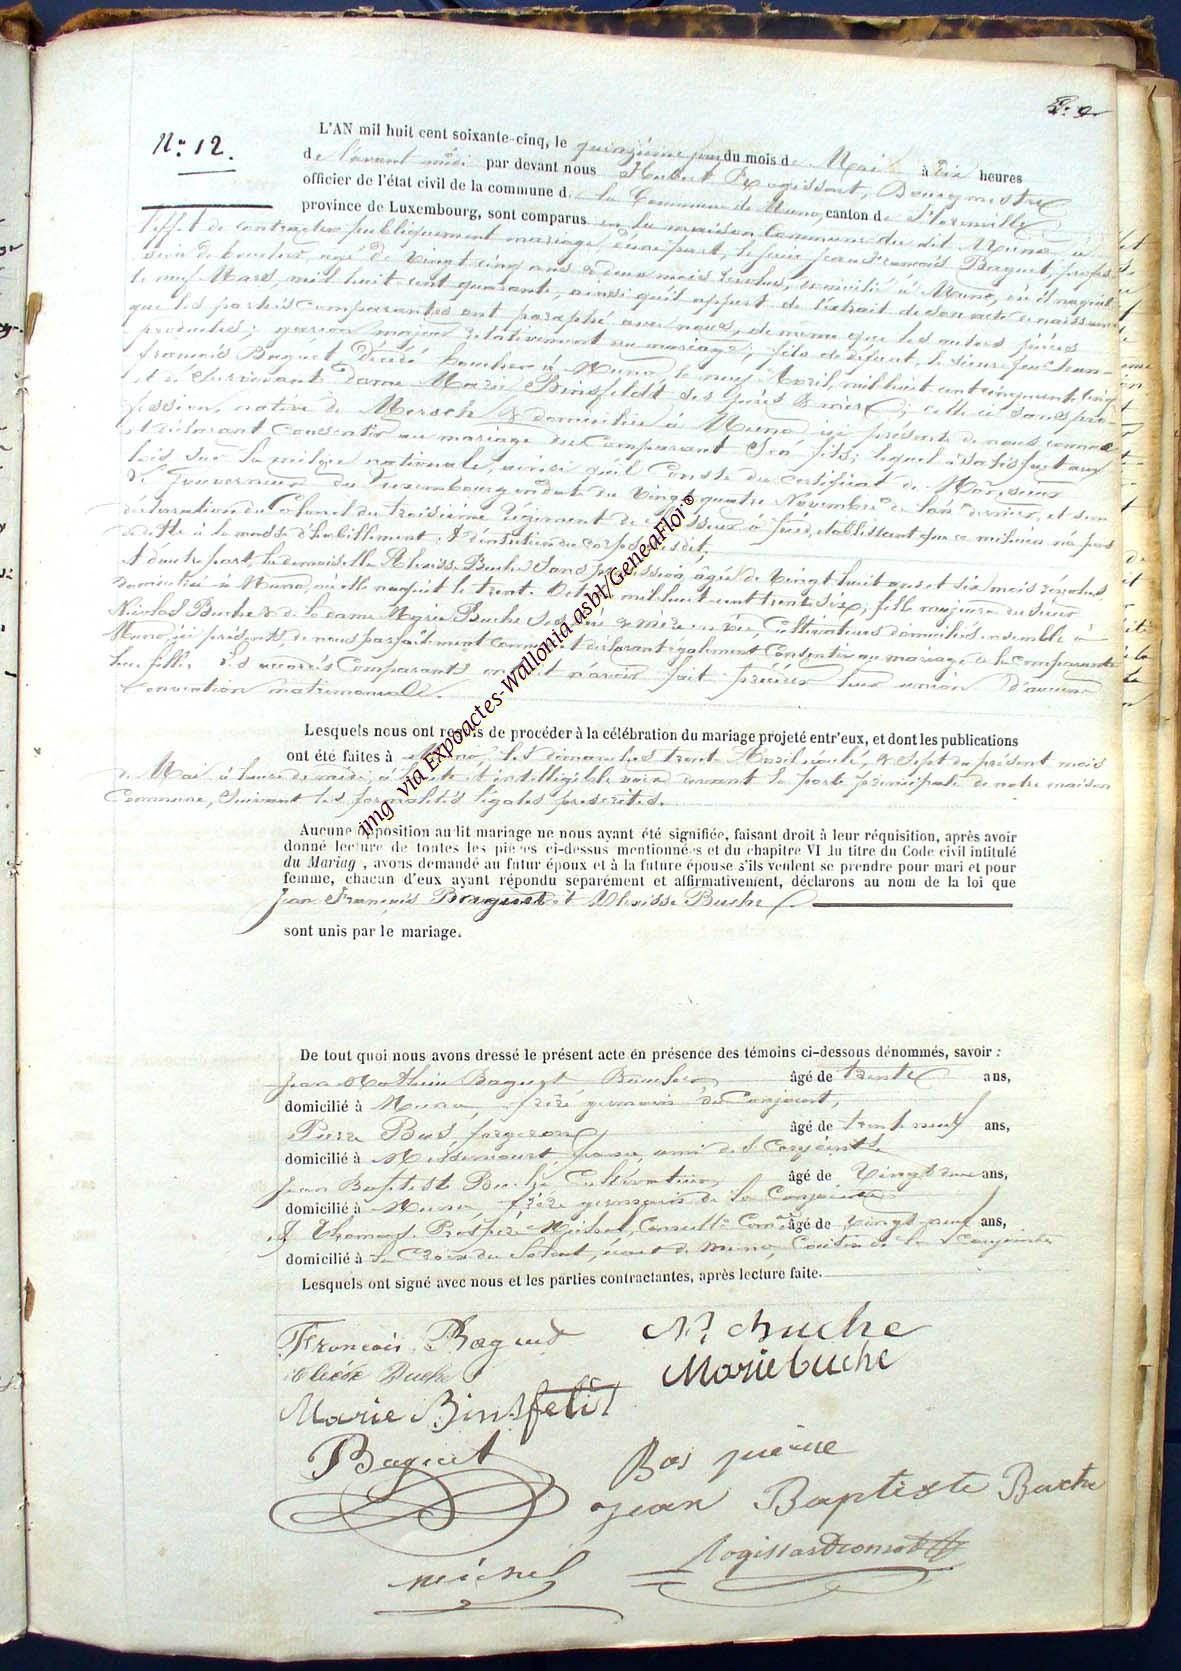 N° 12.
L'AN mil huit cent soixante-cinq, le quinzième jour du mois de Mai à Dix heures
de l'avant midi par devant nous Hubert Rogissart, Bourgmestre
officier de l'état civil de la commune de la Commune de Muno, canton de
province de Luxembourg, sont comparus en la maison Commune du dit Muno, à
l'effet de contracter publiquement mariage d'une part, le sieur Jean François Baguet, profes
sion de boucher, agé de vingt cinq ans & deux mois révolus, domicilié à Muno, où il naquit
le neuf Mars, mil huit cent quarante, ainsi qu'il appert de l'extrait de son acte de naissance
que les parties comparantes ont paraphé avec nous, de même que les autres pièces
produites; garçon majeur relativement au mariage; fils de défunt le sieur Jean-
françois Baguet, décédé boucher à Muno le neuf Avril, mil huit cent cinquante cinq
et de survivante Dame Marie Binsfeldt ses père & mère; celle ci sans pro-
fession, native de Mersch & domiciliée à Muno ici présente de nous connue
et déclarant consentir au mariage du Comparant son fils; lequel a satisfait aux
lois sur la milice nationale, ainsi qu'il Conste du certificat de Monsieur
le Gouverneur du Luxembourg en date du vingt quatre Novembre de l'an dernier, et d'une
déclaration du Colonel du troisième Régiment de Chasseurs à pied, établissant que ce milicien n'a pas
de dette à la masse d'habillement & d'entretien du corps susdit,
Et d'autre part, la demoiselle Buche Sans profession, âgée de vingt huit ans et six mois révolus,
domiciliée à Muno, où elle naquit le trente Octobre mil huit cent trente six; fille majeure du sieur
Nicolas Buche & de la dame Marie Buche ses père & mère en vie, Cultivateurs domiciliés ensemble à
Muno, ici présents, de nous parfaitement connus et déclarant également Consentir au mariage de la comparante
leur fille. Les accordés Comparants ont dit n'avoir fait précéder leur union d'aucune
Convention matrimoniale.
Lesquels nous ont requis de procéder à la célébration du mariage projeté entr'eux, et dont les publications
ont été faites à Muno, les dimanches trente Avril écoulé, & sept du présent mois
de Mai à l'heure de midi, à haute et intelligible voix devant la porte principale de notre maison
Commune, suivant les formalités légales prescrites.
Aucune opposition audit mariage ne nous ayant été signifiée, faisant droit à leur réquisition, après avoir
donné lecture de toutes les pièces ci-dessus mentionnées et du chapitre VI du titre du Code civil intitulé
du Mariag , avons demandé au futur époux et à la future épouse s'ils veulent se prendre pour mari et pour
femme, chacun d'eux ayant répondu séparément et affirmativement, déclarons au nom de la loi que
Jean François Baguet et Buche
sont unis par le mariage.
De tout quoi nous avons dressé le présent acte en présence des témoins ci-dessous dénommés, savoir :
Jean Baguet Boucher âgé de trente ans,
domicilié à Muno, frère germain du Conjoint,
Pierre Bas, forgeron âgé de trente neuf ans,
domicilié à Messincourt france, ami des Conjoints
Jean Baptiste Buche Cultivateur âgé de Vingt ans,
domicilié à Muno, frère germain de la Conjointe
Thomas Prosper Michel, âgé de vingt-neuf ans,
domicilié à La Croix du Soleut, écart de Muno, Cousin de la Conjointe
Lesquels ont signé avec nous et les parties contractantes, après lecture faite.
François Baguet N. Buche
Buche Marie buche
Marie Binsfeldt
Baguet Bas pierre
Jean Baptiste Buche
michel
img via Expoactes-Wallonia asbl/GeneaFlor©